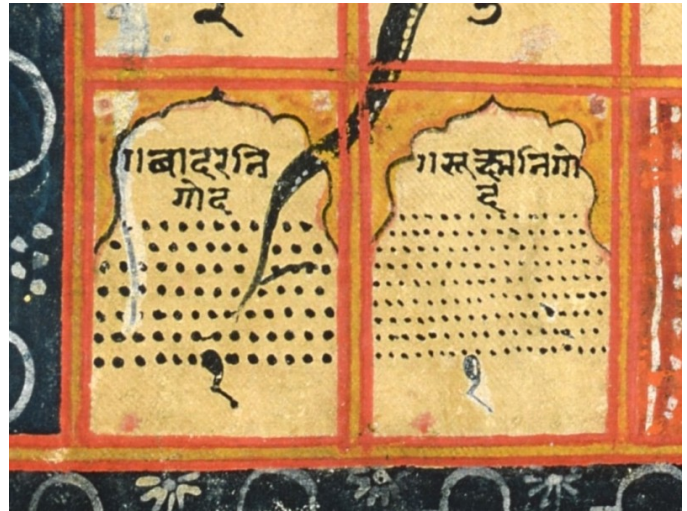 ॥बादरनि
गोद
॥सूक्ष्मनिगो
द